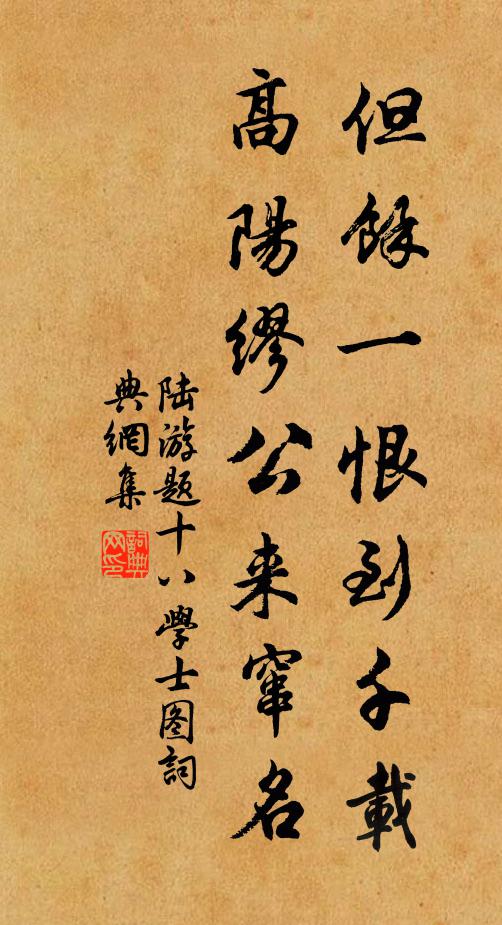 但餘一恨到千載
高陽繆公来窜名
陆游题十八學士图詞
典網集
詞典网印